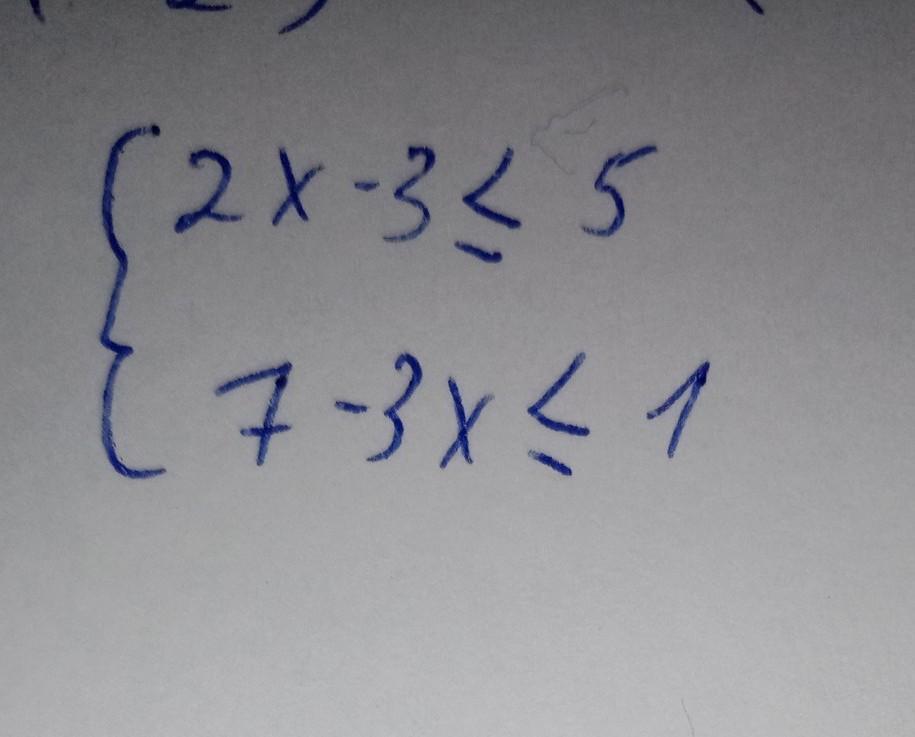 2x-3≤5
7-3x≤1